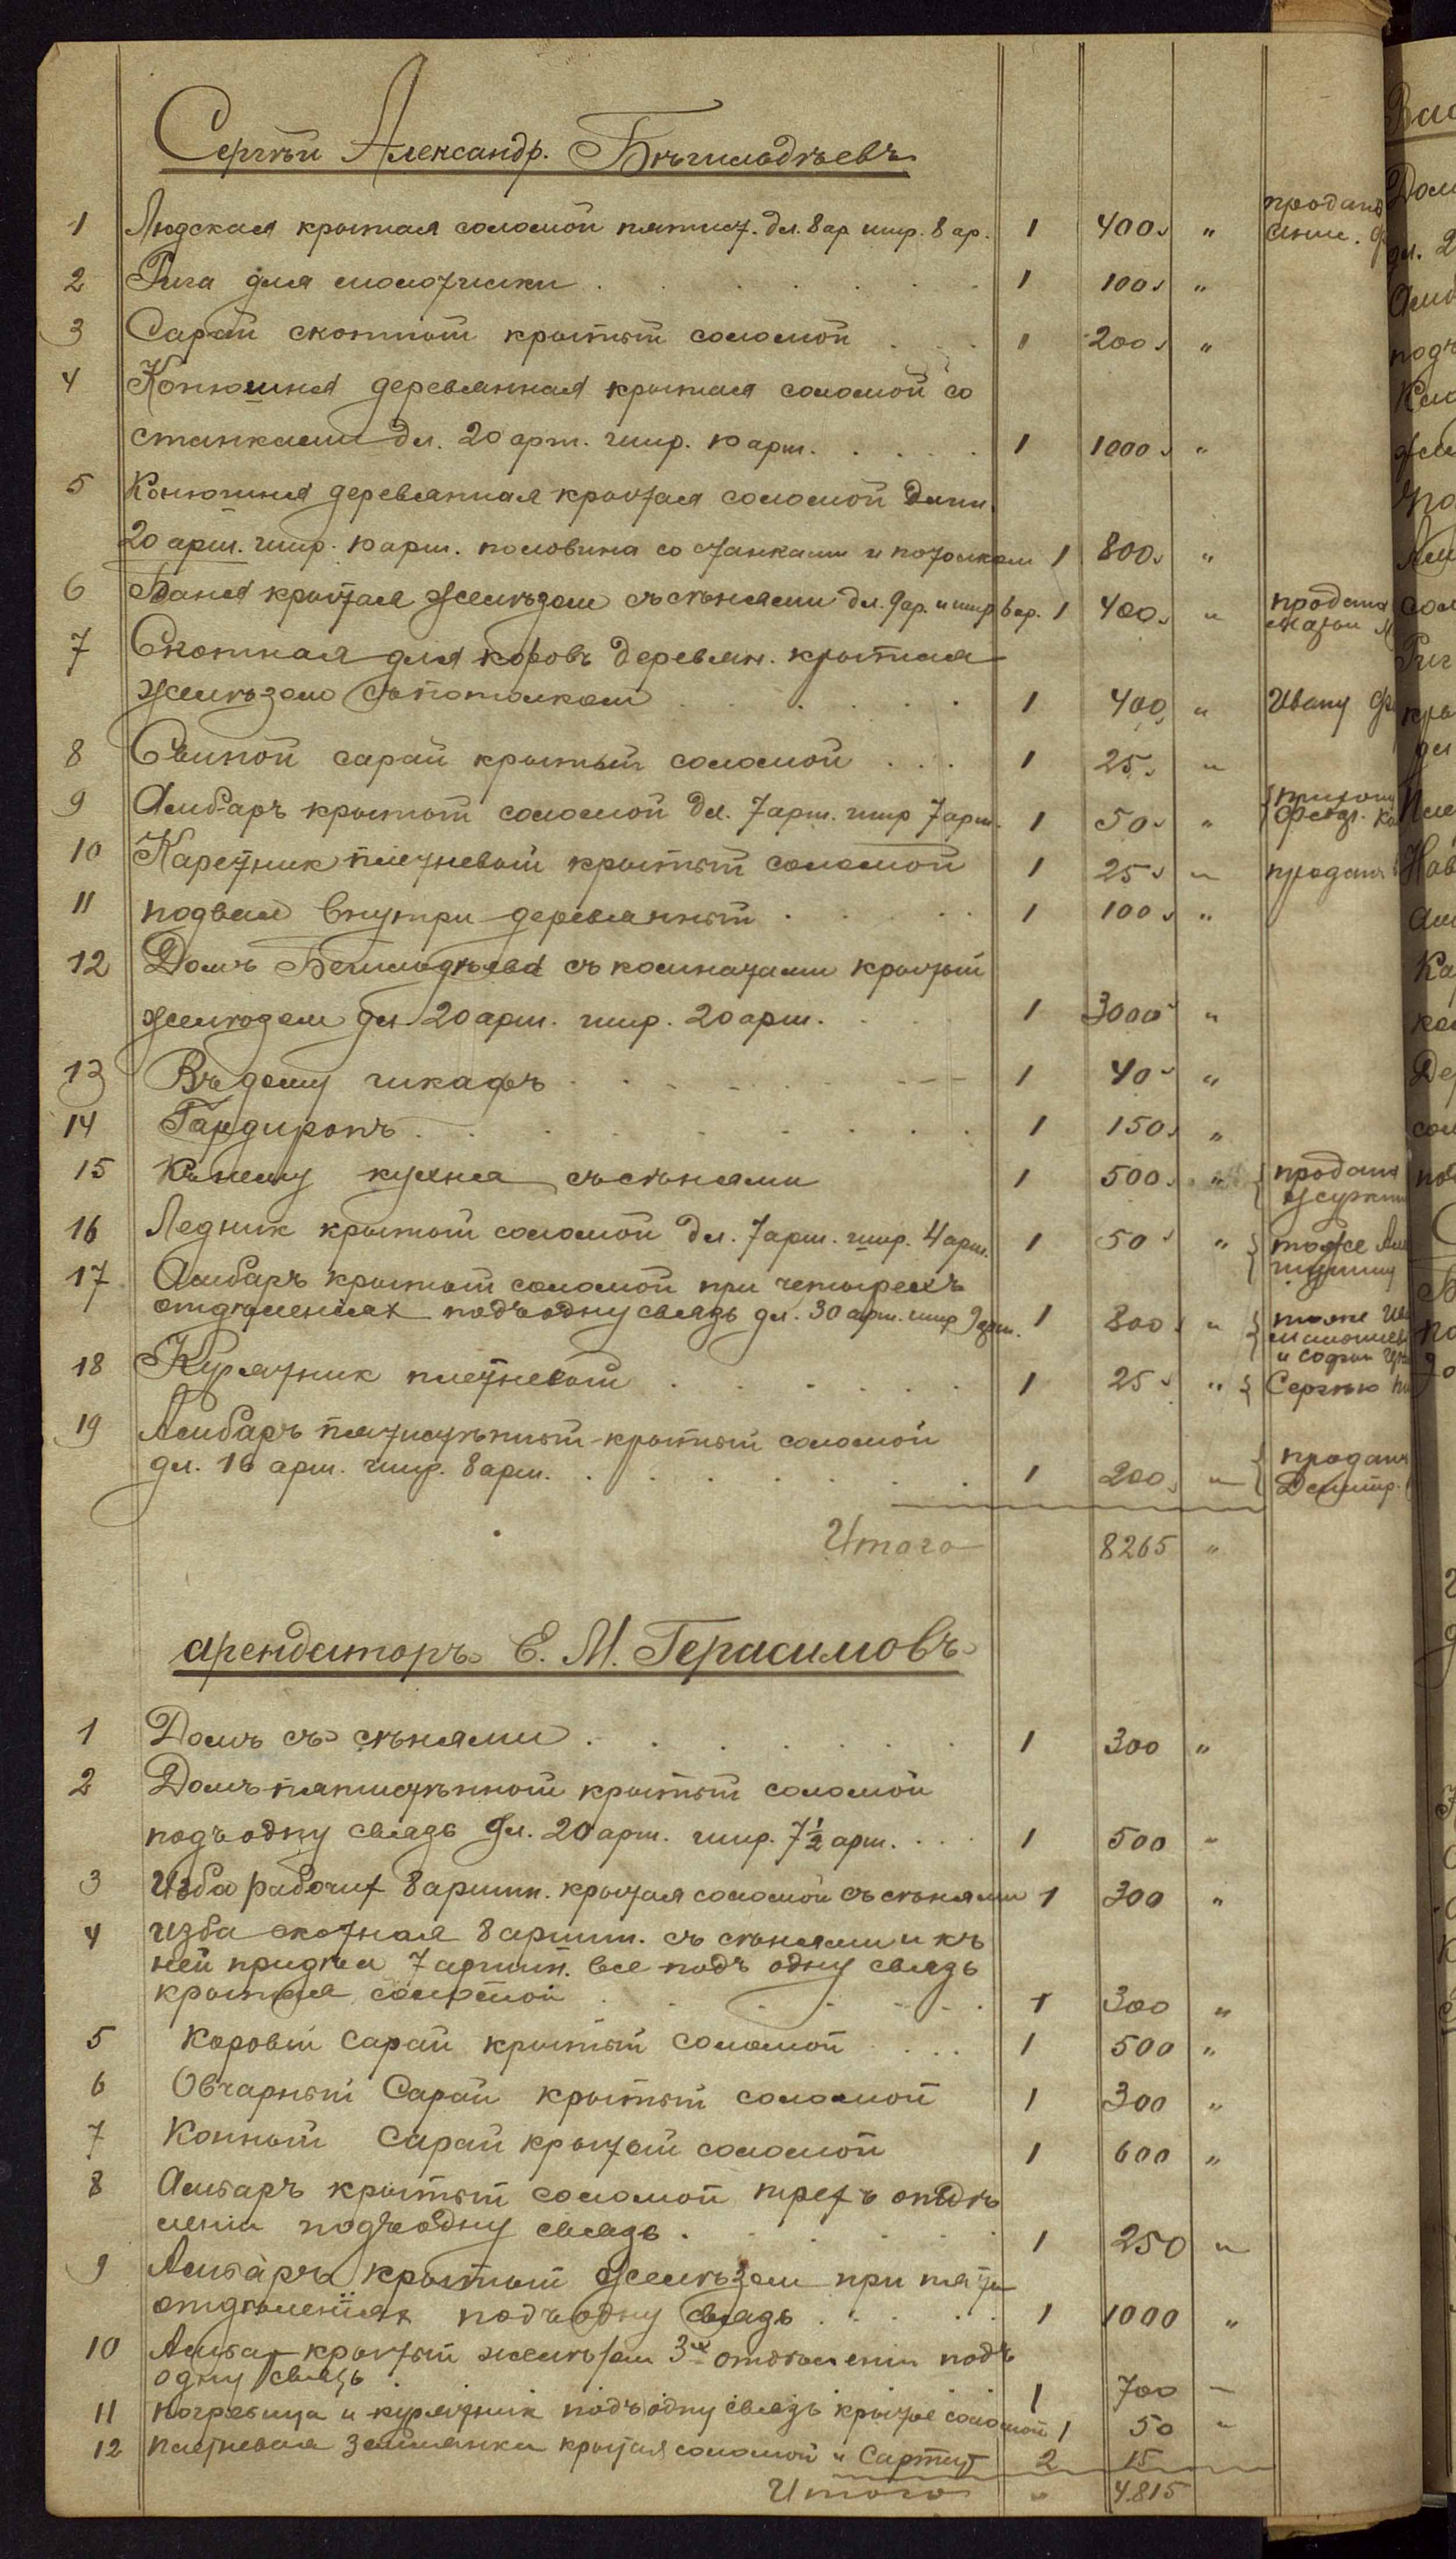 Сергѣй Александр. Бѣгильдѣевъ
1 Людская крытая соломой пятист. дл. 8 ар шир. 8 ар. 1 400 "
продано
2 Рига для молотилки . . . 1 100 "
3 Сарай скотный крытый соломой . . . 1 200 "
4 Конюшня деревянная крытая соломой со
станками дл. 20 арш. шир. 10 арш. . . . 1 1000 "
5 Конюшня деревянная крытая соломой длин.
20 арш. шир. 10 арш. половина со станками и потолком 1 800 "
6 Баня крытая желѣзом съ сѣнями дл. 9 ар. и шир 6 ар. 1 400 "
продана
7 Скотная для коровъ деревян. крытая
желѣзомъ съ потолкомъ . . . 1 400 " Ивану
8 Свиной сарай крытый соломой . . . 1 25 "
9 Амбаръ крытый соломой дл. 7 арш. шир 7 арш. 1 50 "
10 Каретник плетневый крытый соломой 1 25 " проданъ
11 подвал внутри деревянный . . . 1 100 "
12 Домъ Бегильдѣева съ комнатами крытый
желѣзом дл 20 арш. шир. 20 арш. . . . 1 3000 "
13 Въ дому шкафъ . . . 1 40 "
14 Гардиропъ . . . 1 150 "
15 Къ нему кухня съ сѣнями 1 500 " продана
16 Ледник крытый соломой дл. 7 арш. шир. 4 арш. 1 50 " тоже
17 Амбаръ крытый соломой при четырехъ
отдѣленіях подъ одну связь дл. 30 арш. шир 9 арш. 1 800 " тоже
и софьи
18 Курятник плетневый . . . 1 25 " Сергѣю
19 Амбаръ пятистѣнный крытый соломой
дл. 16 арш. шир. 8 арш. . . . 1 200 " проданъ
Дмитр.
Итого 8265 "
арендаторъ Е. М. Герасимовъ
1 Домъ съ сѣнями . . . 1 300 "
2 Домъ пятистѣнный крытый соломой
подъ одну связь дл. 20 арш. шир. 7½ арш. . . . 1 500 "
3 Изба рабочих 8 аршин. крытая соломой съ сѣнями 1 300 "
4 изба скотная 8 аршин. съ сѣнями и къ
ней придѣл 7 аршин. все подъ одну связь
крытая соломой . . . 1 300 "
5 Коровій Сарай крытый соломой . . . 1 500 "
6 Овчарный Сарай крытый соломой 1 300 "
7 Конный Сарай крытый соломой 1 600 "
8 Амбаръ крытый соломой трехъ отдѣ
леній подъ одну связь . . . 1 250 "
9 Амбаръ крытый желѣзом при пяти
отдѣленіях подъ одну связь . . . 1 1000 "
10 Амбар крытый желѣзом 3х отдѣленій подъ
одну связь . 1 700 "
11 Погребица и курятник подъ одну связь крытые соломой 1 50 "
12 плетневая землянка крытая соломой и 2 15
Итого " 4.815